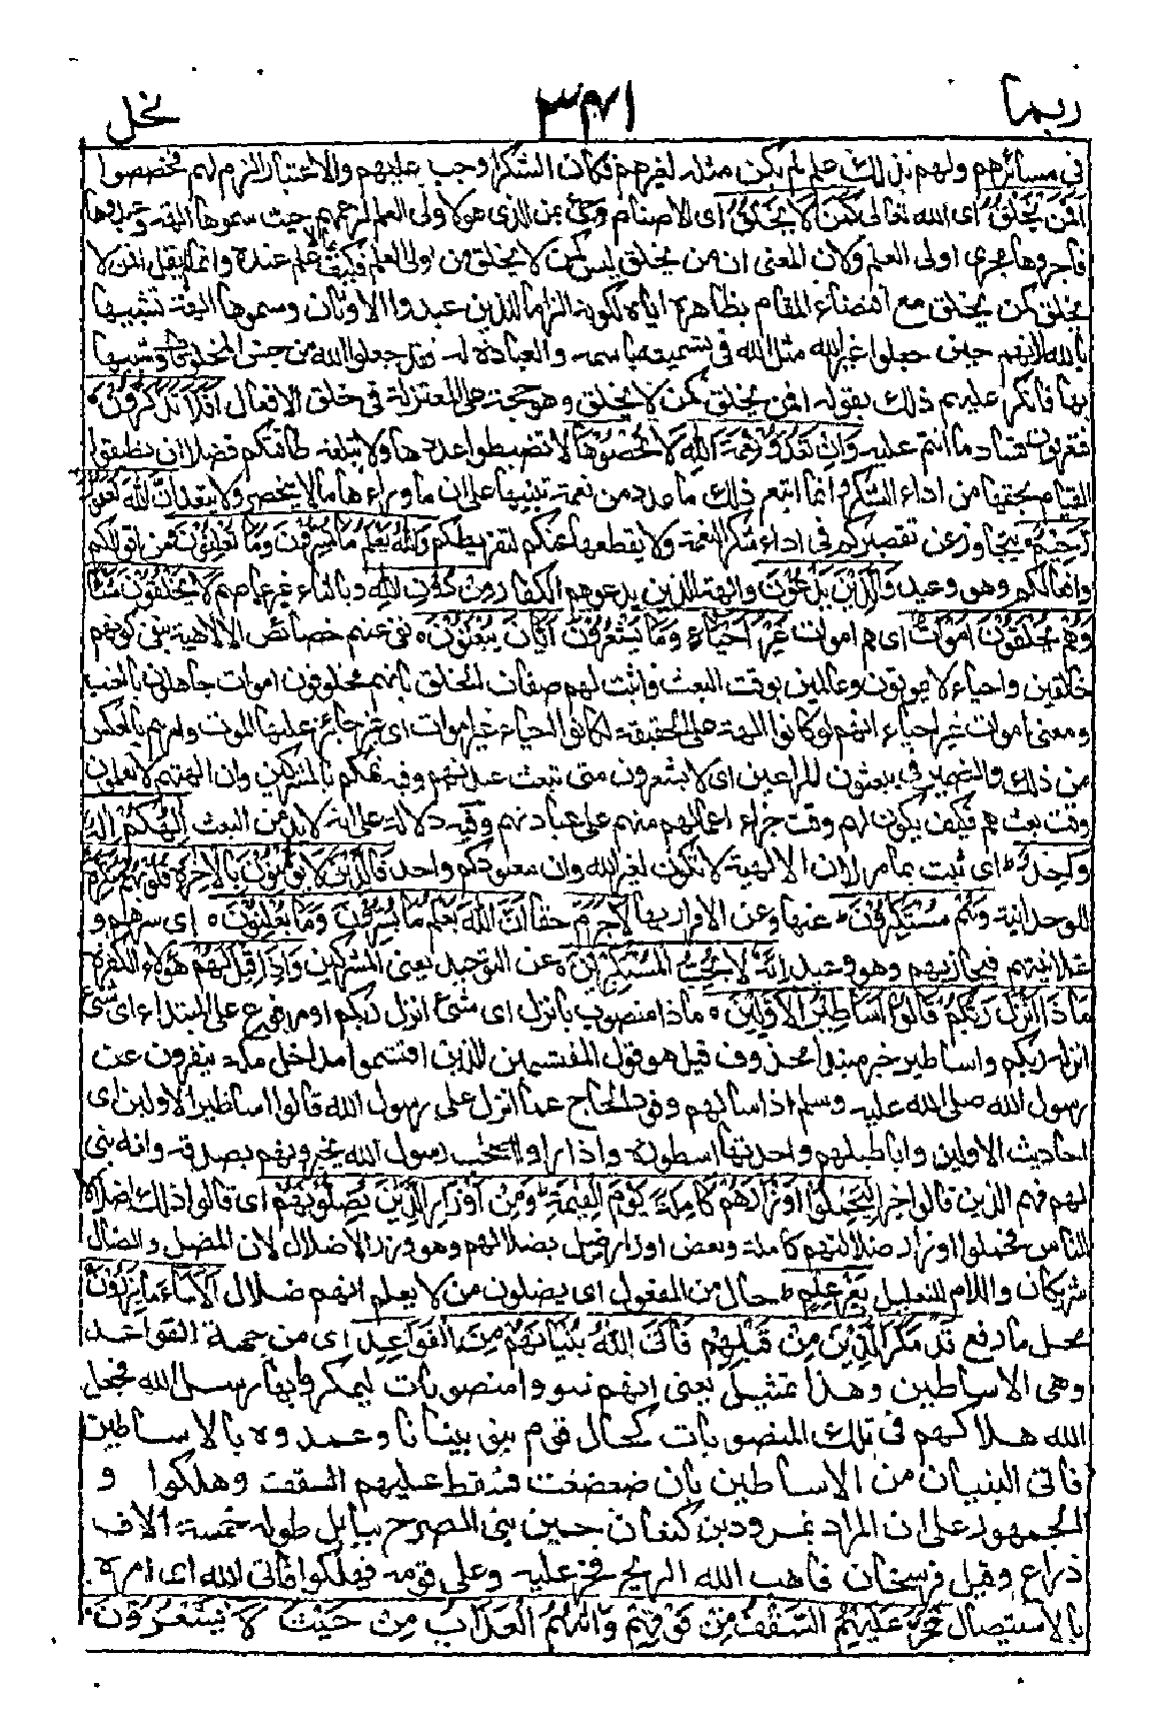 ربما ٣٧١ نحل
في مسائرهم ولهم بذلك علم لم يكن مثله لغيرهم فكان الشكر اوجب عليهم والاعتبار الزم لهم فخصصوا
اَفَمَنْ يَّخْلُقُ اى الله تعالى كَمَنْ لَّا يَخْلُقُ اى الاصنام وجئ بمن الذى هو لاولى العلم لزعمهم حيث سموها الهة وعبدوها
فاجروها مجرى اولى العلم ولان المعنى ان من يخلق ليس كمن لا يخلق من اولى العلم فكيف بما لا علم عنده وانما لم يقل افمن لا
يخلق كمن يخلق مع اقتضاء المقام بظاهره اياه لكونه الزاما للذين عبدوا الاوثان وسموها الهة تشبيها
بالله لانهم حين جعلوا غير الله مثل الله في تسميته باسمه والعبادة له فقد جعلوا الله من جنس المخلوقات وشبيها
بها فانكر عليهم ذلك بقوله افمن يخلق كمن لا يخلق وهو حجة على المعتزلة في خلق الافعال اَفَلَا تَذَكَّرُوْنَ
فتعرفون فساد ما انتم عليه وَاِنْ تَعُدُّوْا نِعْمَةَ اللّٰهِ لَا تُحْصُوْهَا لا تضبطوا عددها ولا تبلغه طاقتكم فضلا ان تطيقوا
القيام بحقها من اداء الشكر وانما اتبع ذلك ما عدد من نعمه تنبيها على ان ما وراءها ما لا ينحصر ولا يتعد اِنَّ اللّٰهَ لَغَفُوْرٌ
رَّحِيْمٌ يتجاوز عن تقصيركم في اداء شكر النعمة ولا يقطعها عنكم لتفريطكم وَاللّٰهُ يَعْلَمُ مَا تُسِرُّوْنَ وَمَا تُعْلِنُوْنَ من اقوالكم
وافعالكم وهو وعيد وَالَّذِيْنَ يَدْعُوْنَ والهة الذين يدعوهم الكفار مِنْ دُوْنِ اللّٰهِ وبالتاء غير عاصم لَا يَخْلُقُوْنَ شَيْئًا
وَّهُمْ يُخْلَقُوْنَ اَمْوَاتٌ اى هم اموات غَيْرُ اَحْيَاءٍ وَمَا يَشْعُرُوْنَ اَيَّانَ يُبْعَثُوْنَ نفى عنهم خصائص الالاهية بنفى كونهم
خالقين واحياء لا يموتون وعالمين بوقت البعث واثبت لهم صفات الخلق بانهم مخلوقون اموات جاهلون بالغيب
ومعنى اموات غير احياء انهم لو كانوا الهة على الحقيقة لكانوا احياء غير اموات اى غير جائز عليها الموت وامرهم بالعكس
من ذلك والضمير في يبعثون للداعين اى لا يشعرون متى تبعث عبدتهم وفيه تهكم بالمشركين وان الهتهم لا يعلمون
وقت بعثهم فكيف يكون لهم وقت جزاء اعمالهم منهم على عبادتهم وفيه دلالة على انه لابد من البعث اِلٰهُكُمْ اِلٰهٌ
وَّاحِدٌ اى ثبت بما مر ان الالهية لا تكون لغير الله وان معبودكم واحد فَالَّذِيْنَ لَا يُؤْمِنُوْنَ بِالْاٰخِرَةِ قُلُوْبُهُمْ مُّنْكِرَةٌ
للوحدانية وَهُمْ مُّسْتَكْبِرُوْنَ عنها وعن الاقرار بها لَاجَرَمَ حقا اَنَّ اللّٰهَ يَعْلَمُ مَا يُسِرُّوْنَ وَمَا يُعْلِنُوْنَ اى سرهم و
علانيتهم فيجازيهم وهو وعيد اِنَّهٗ لَا يُحِبُّ الْمُسْتَكْبِرِيْنَ عن التوحيد يعنى المشركين وَاِذَا قِيْلَ لَهُمْ هؤلاء الكفرة
مَاذَا اَنْزَلَ رَبُّكُمْ قَالُوْا اَسَاطِيْرُ الْاَوَّلِيْنَ ماذا منصوب بانزل اى شئ انزل ربكم او مرفوع على الابتداء اى اى شئ
انزله ربكم واساطير خبر مبتدا محذوف قيل هو قول المقتسمين الذين اقتسموا مداخل مكة ينفرون عن
رسول الله صلى الله عليه وسلم اذا سالهم وفود الحاج عما انزل على رسول الله قالوا اساطير الاولين اى
احاديث الاولين واباطيلهم واحدتها اسطورة واذا راوا اصحاب رسول الله يخبرونهم بصدقه وانه نبى
لهم فهم الذين قالوا خيرا لِيَحْمِلُوْا اَوْزَارَهُمْ كَامِلَةً يَّوْمَ الْقِيٰمَةِ وَمِنْ اَوْزَارِ الَّذِيْنَ يُضِلُّوْنَهُمْ اى قالوا ذلك اضلالا
للناس فحملوا اوزار ضلالتهم كاملة وبعض اوزار من ضل بضلالهم وهو وزر الاضلال لان المضل والضال
شريكان واللام للتعليل بِغَيْرِ عِلْمٍ حال من المفعول اى يضلون من لا يعلم انهم ضلال اَلَا سَاءَ مَا يَزِرُوْنَ
محل ما رفع قَدْ مَكَرَ الَّذِيْنَ مِنْ قَبْلِهِمْ فَاَتَى اللّٰهُ بُنْيَانَهُمْ مِّنَ الْقَوَاعِدِ اى من جهة القواعد
وهى الاساطين وهذا تمثيل يعنى انهم سووا منصوبات ليمكروا بها رسل الله فجعل
الله هلاكهم في تلك المنصوبات كحال قوم بنوا بنيانا وعمدوه بالاساطين
فاتى البنيان من الاساطين بان ضعضعت فسقط عليهم السقف وهلكوا و
الجمهور على ان المراد نمرود بن كنعان حين بنى الصرح ببابل طوله خمسة الاف
ذراع وقيل فرسخان فاهب الله الريح فخر عليه وعلى قومه فهلكوا فاتى الله اى امره
بالاستيصال فَخَرَّ عَلَيْهِمُ السَّقْفُ مِنْ فَوْقِهِمْ وَاَتٰهُمُ الْعَذَابُ مِنْ حَيْثُ لَا يَشْعُرُوْنَ